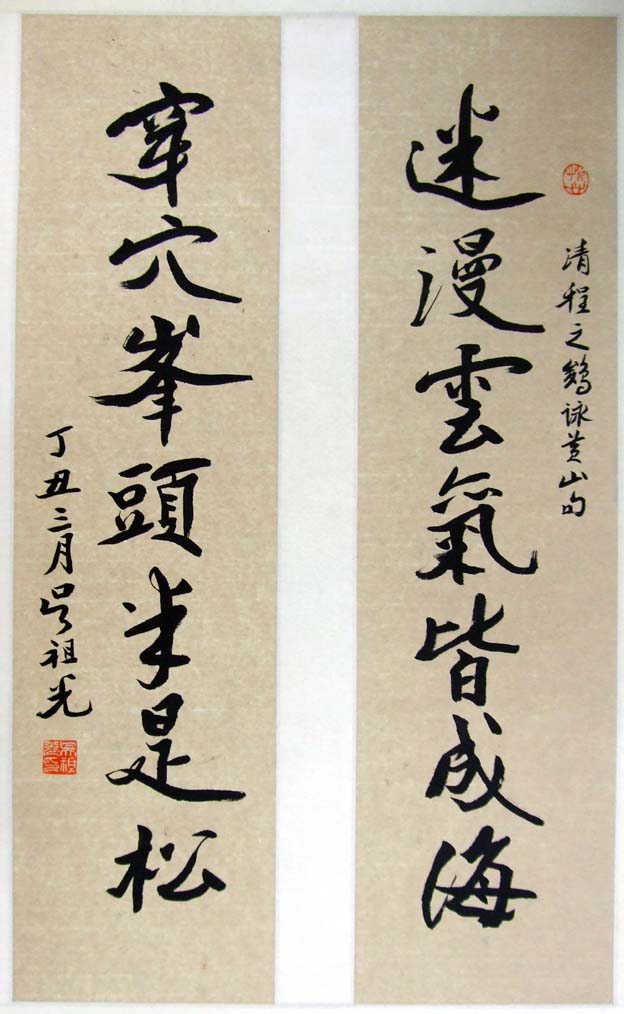 清程之鵔詠黄山句
迷漫雲氣皆成海
穿穴峯頭半是松
丁丑三月吳祖光
吳祖光印